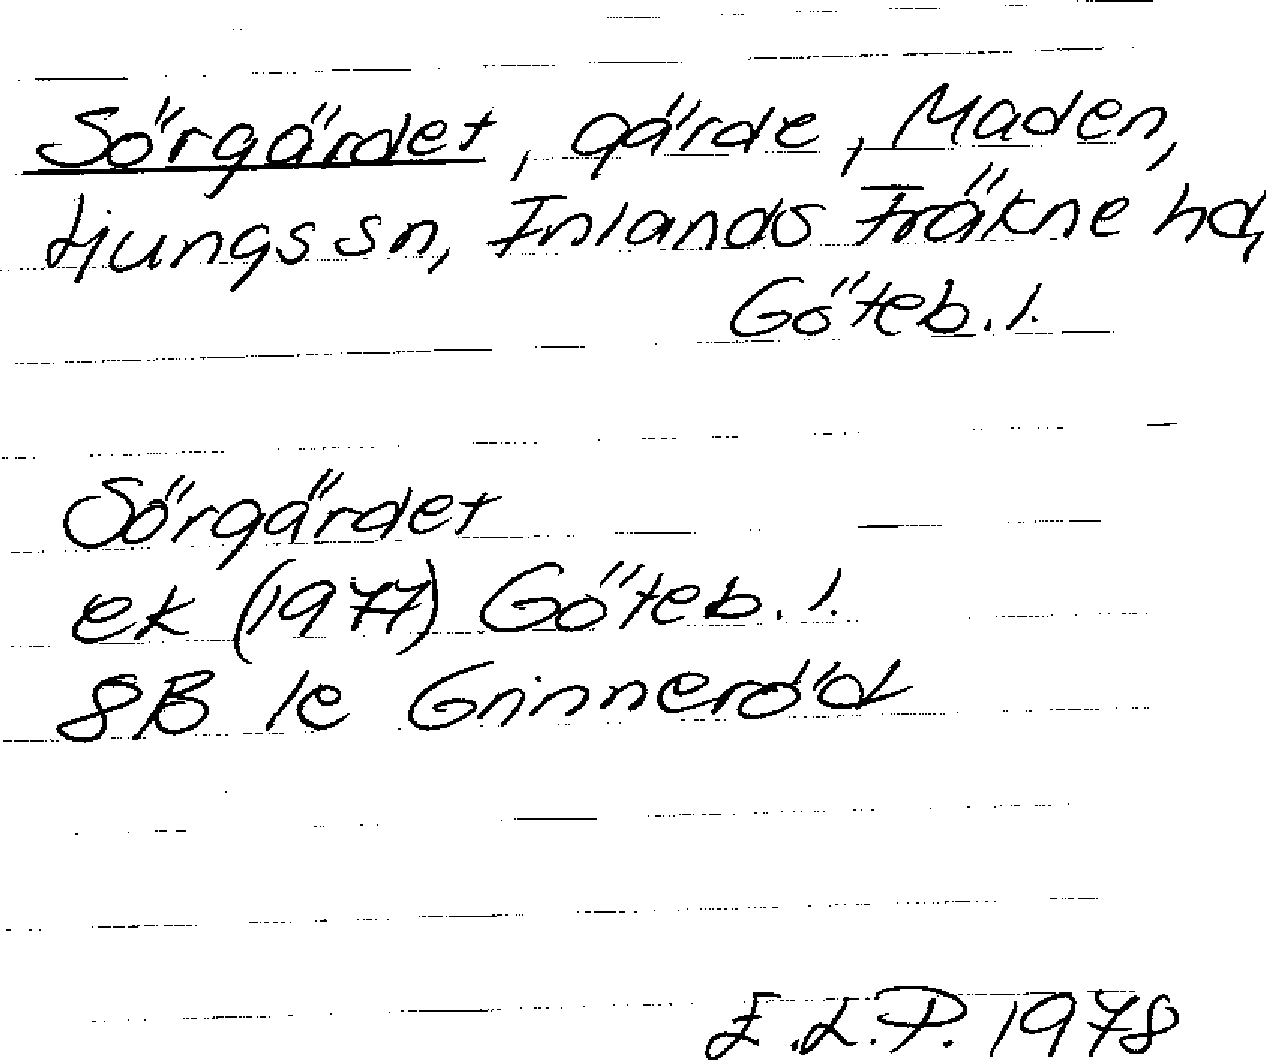 Sörgärdet, gärde, Maden,
Ljungs sn, Inlands Fräkne hd,
Göteb. l.
Sörgärdet
ek (1977) Göteb. l.
8B 1e Grinneröd
E.L.P. 1978